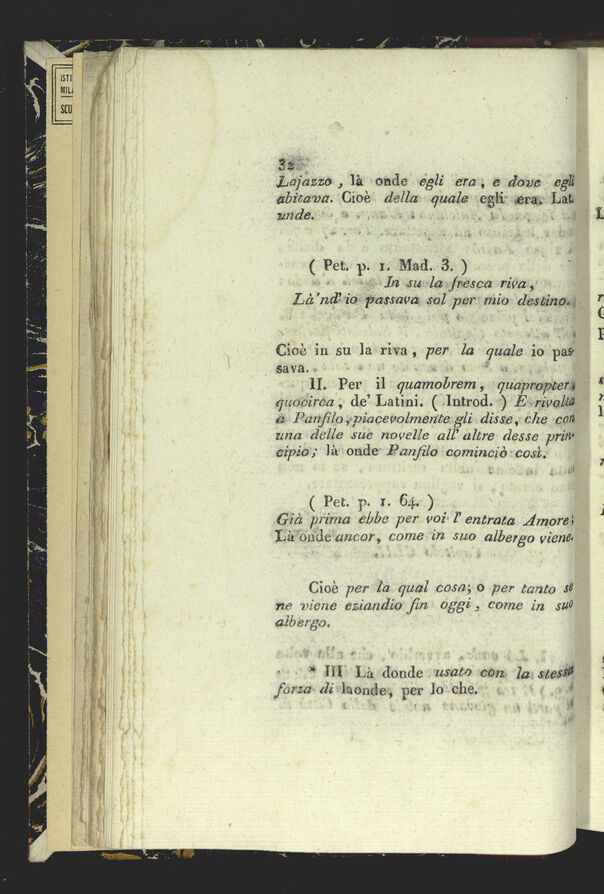 ISTI
MIL
SCU
32
Lajazzo, là onde egli era, e dove egli
abitava. Cioè della quale egli era. Lat.
unde.
( Pet. p. 1. Mad. 3. )
In su la fresca riva,
Là'nd' io passava sol per mio destino.
Cioè in su la riva, per la quale io pas-
sava.
II. Per il quamobrem, quapropter,
quocirca, de' Latini. ( Introd. ) E rivolta
a Panfilo, piacevolmente gli disse, che con
una delle sue novelle all' altre desse prin-
cipio; là onde Panfilo cominciò così.
( Pet. p. 1. 64. )
Già prima ebbe per voi l' entrata Amore;
Là onde ancor, come in suo albergo viene.
Cioè per la qual cosa; o per tanto se
ne viene eziandio fin oggi, come in suo
albergo.
* III Là donde usato con la stessa
forza di laonde, per lo che.